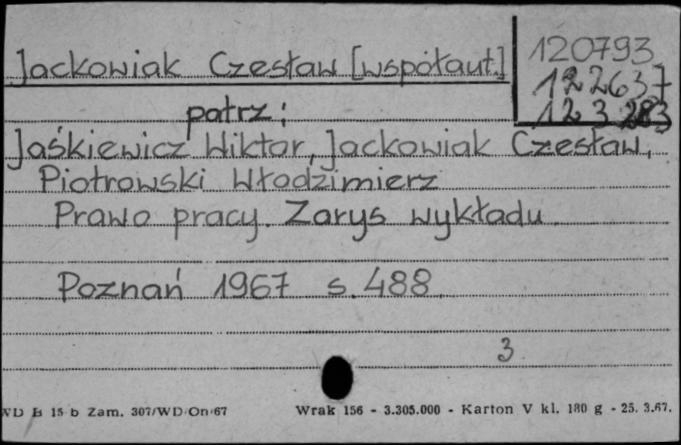 Jackowiak Czesław [współaut.]
120793
122637
123283
patrz:
Jaśkiewicz Wiktor, Jackowiak Czesław,
Piotrowski Włodzimierz
Prawo pracy. Zarys wykładu
Poznań 1967 s. 488
3
WD B 15 b Zam. 307/WD/On/67 Wrak 156 - 3.305.000 - Karton V kl. 180 g - 25. 3.67.